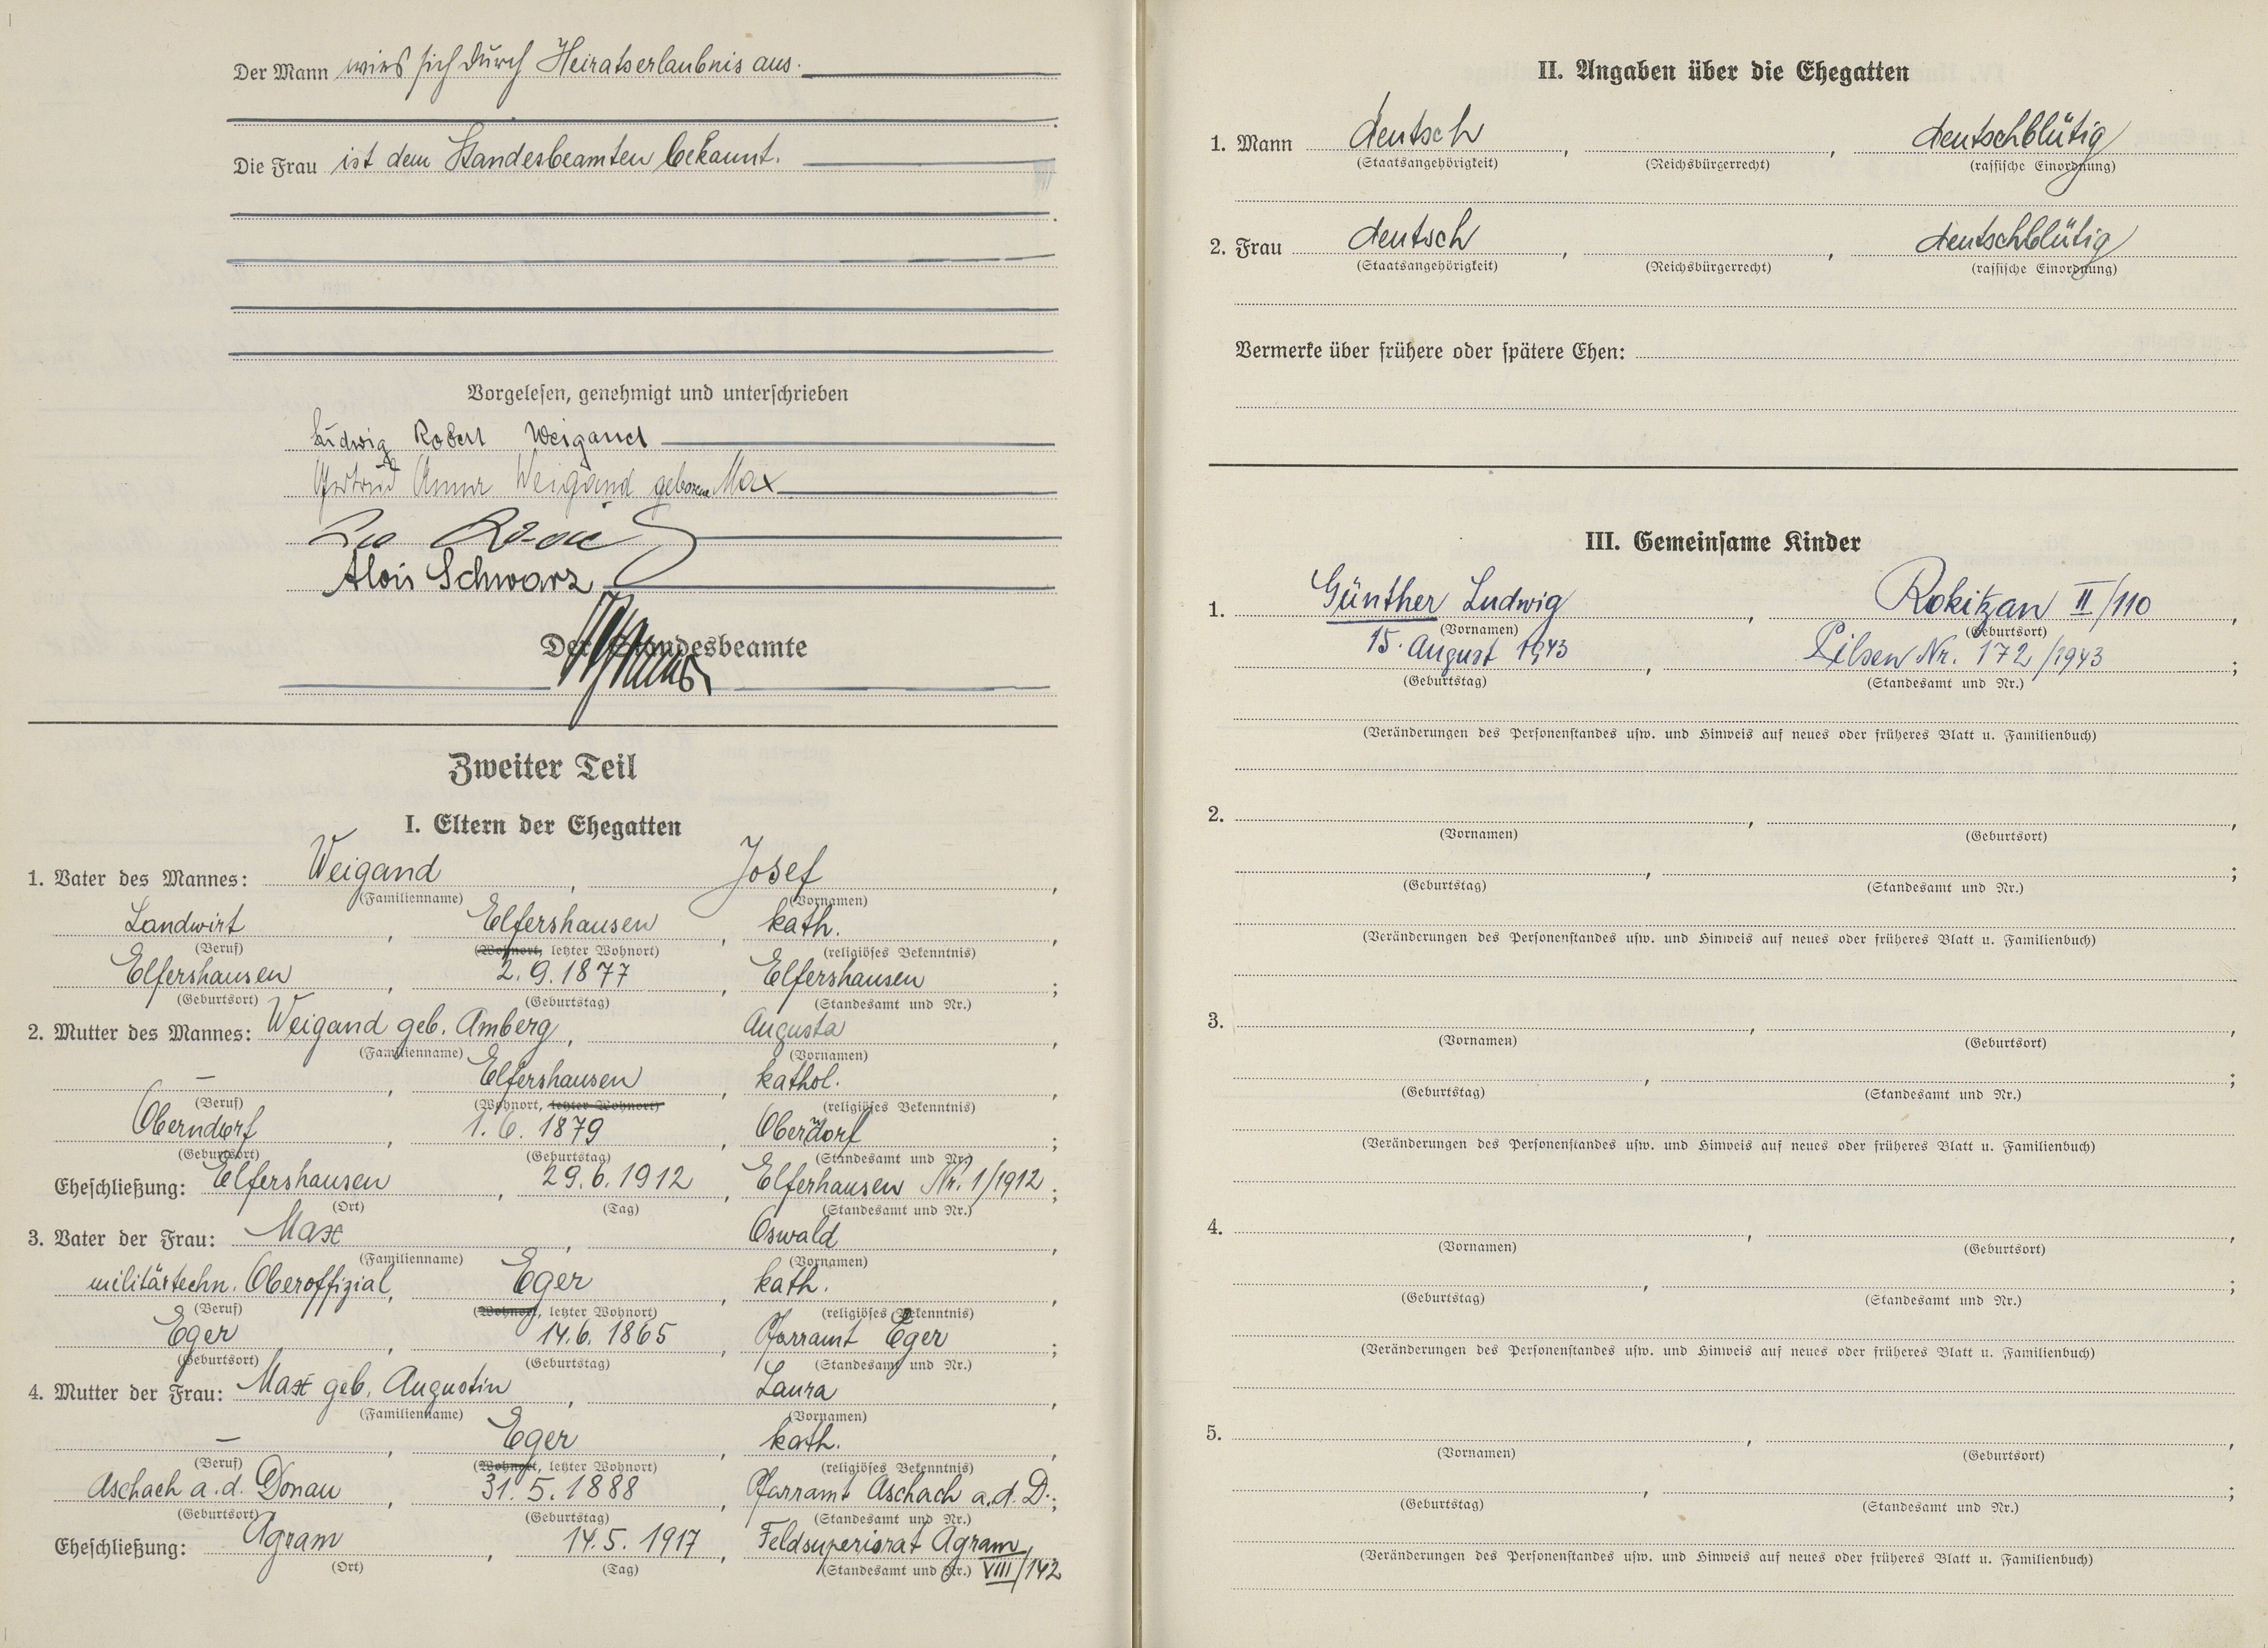 Der Mann wies sich durch Heiratserlaubnis aus.
Die Frau ist dem Standesbeamten bekannt.
Vorgelesen, genehmigt und unterschrieben
Ludwig Robert Weigand
Gertrud Anna Weigand geborene Max
Alois Schwarz
Der Standesbeamte
Zweiter Teil
I. Eltern der Ehegatten
1. Vater des Mannes: Weigand, Josef,
(Familienname) (Vornamen)
Landwirt, Elfershausen, kath.,
(Beruf) (Wohnort, letzter Wohnort) (religiöses Bekenntnis)
Elfershausen, 2.9.1877, Elfershausen;
(Geburtsort) (Geburtstag) (Standesamt und Nr.)
2. Mutter des Mannes: Weigand geb. Amberg, Augusta,
(Familienname) (Vornamen)
–, Elfershausen, kathol.,
(Beruf) (Wohnort, letzter Wohnort) (religiöses Bekenntnis)
Oberndorf, 1.6.1879, Oberdorf;
(Geburtsort) (Geburtstag) (Standesamt und Nr.)
Eheschließung: Elfershausen, 29.6.1912, Elferhausen Nr. 1/1912;
(Ort) (Tag) (Standesamt und Nr.)
3. Vater der Frau: Max, Oswald,
(Familienname) (Vornamen)
militärtechn. Oberoffizial, Eger, kath.,
(Beruf) (Wohnort, letzter Wohnort) (religiöses Bekenntnis)
Eger, 14.6.1865, Pfarramt Eger;
(Geburtsort) (Geburtstag) (Standesamt und Nr.)
4. Mutter der Frau: Max geb. Augustin, Laura,
(Familienname) (Vornamen)
–, Eger, kath.,
(Beruf) (Wohnort, letzter Wohnort) (religiöses Bekenntnis)
Aschach a.d. Donau, 31.5.1888, Pfarramt Aschach a.d.D.;
(Geburtsort) (Geburtstag) (Standesamt und Nr.)
Eheschließung: Agram, 14.5.1917, Feldsuperiorat Agram,
(Ort) (Tag) (Standesamt und Nr.) VIII/142
II. Angaben über die Ehegatten
1. Mann deutsch, , deutschblütig
(Staatsangehörigkeit) (Reichsbürgerrecht) (rassische Einordnung)
2. Frau deutsch, , deutschblütig
(Staatsangehörigkeit) (Reichsbürgerrecht) (rassische Einordnung)
Vermerke über frühere oder spätere Ehen:
III. Gemeinsame Kinder
1. Günther Ludwig, Rokitzan II/110,
(Vornamen) (Geburtsort)
15. August 1943, Pilsen Nr. 172/1943;
(Geburtstag) (Standesamt und Nr.)
(Veränderungen des Personenstandes usw. und Hinweis auf neues oder früheres Blatt u. Familienbuch)
2. , ,
(Vornamen) (Geburtsort)
, ;
(Geburtstag) (Standesamt und Nr.)
(Veränderungen des Personenstandes usw. und Hinweis auf neues oder früheres Blatt u. Familienbuch)
3. , ,
(Vornamen) (Geburtsort)
, ;
(Geburtstag) (Standesamt und Nr.)
(Veränderungen des Personenstandes usw. und Hinweis auf neues oder früheres Blatt u. Familienbuch)
4. , ,
(Vornamen) (Geburtsort)
, ;
(Geburtstag) (Standesamt und Nr.)
(Veränderungen des Personenstandes usw. und Hinweis auf neues oder früheres Blatt u. Familienbuch)
5. , ,
(Vornamen) (Geburtsort)
, ;
(Geburtstag) (Standesamt und Nr.)
(Veränderungen des Personenstandes usw. und Hinweis auf neues oder früheres Blatt u. Familienbuch)